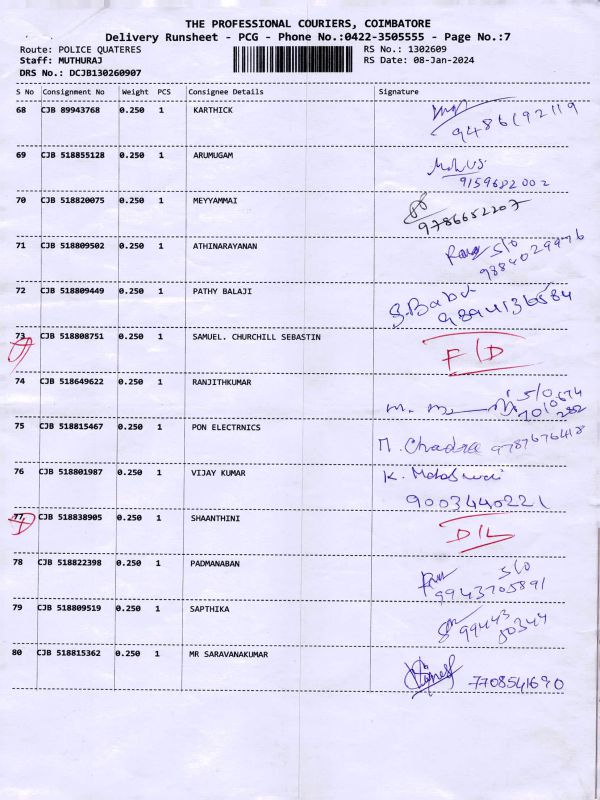 THE PROFESSIONAL COURIERS, COIMBATORE
Delivery Runsheet - PCG - Phone No.:0422-3505555 - Page No.:7
Route: POLICE QUATERES RS No.: 1302609
Staff: MUTHURAJ RS Date: 08-Jan-2024
DRS No.: DCJB130260907
S No Consignment No Weight PCS Consignee Details Signature
68 CJB 89943768 0.250 1 KARTHICK
9486192119
69 CJB 518855128 0.250 1 ARUMUGAM
9159682002
70 CJB 518820075 0.250 1 MEYYAMMAI
9786652207
71 CJB 518809502 0.250 1 ATHINARAYANAN S/O
9884029976
72 CJB 518809449 0.250 1 PATHY BALAJI S.Babu
9894136584
73 CJB 518808751 0.250 1 SAMUEL. CHURCHILL SEBASTIN
F/D
74 CJB 518649622 0.250 1 RANJITHKUMAR S/O
75 CJB 518815467 0.250 1 PON ELECTRNICS
9787676418
76 CJB 518801987 0.250 1 VIJAY KUMAR K.
9003440221
77 CJB 518838905 0.250 1 SHAANTHINI
D/L
78 CJB 518822398 0.250 1 PADMANABAN S/O
9943705891
79 CJB 518809519 0.250 1 SAPTHIKA
99443
50344
80 CJB 518815362 0.250 1 MR SARAVANAKUMAR
7708541690